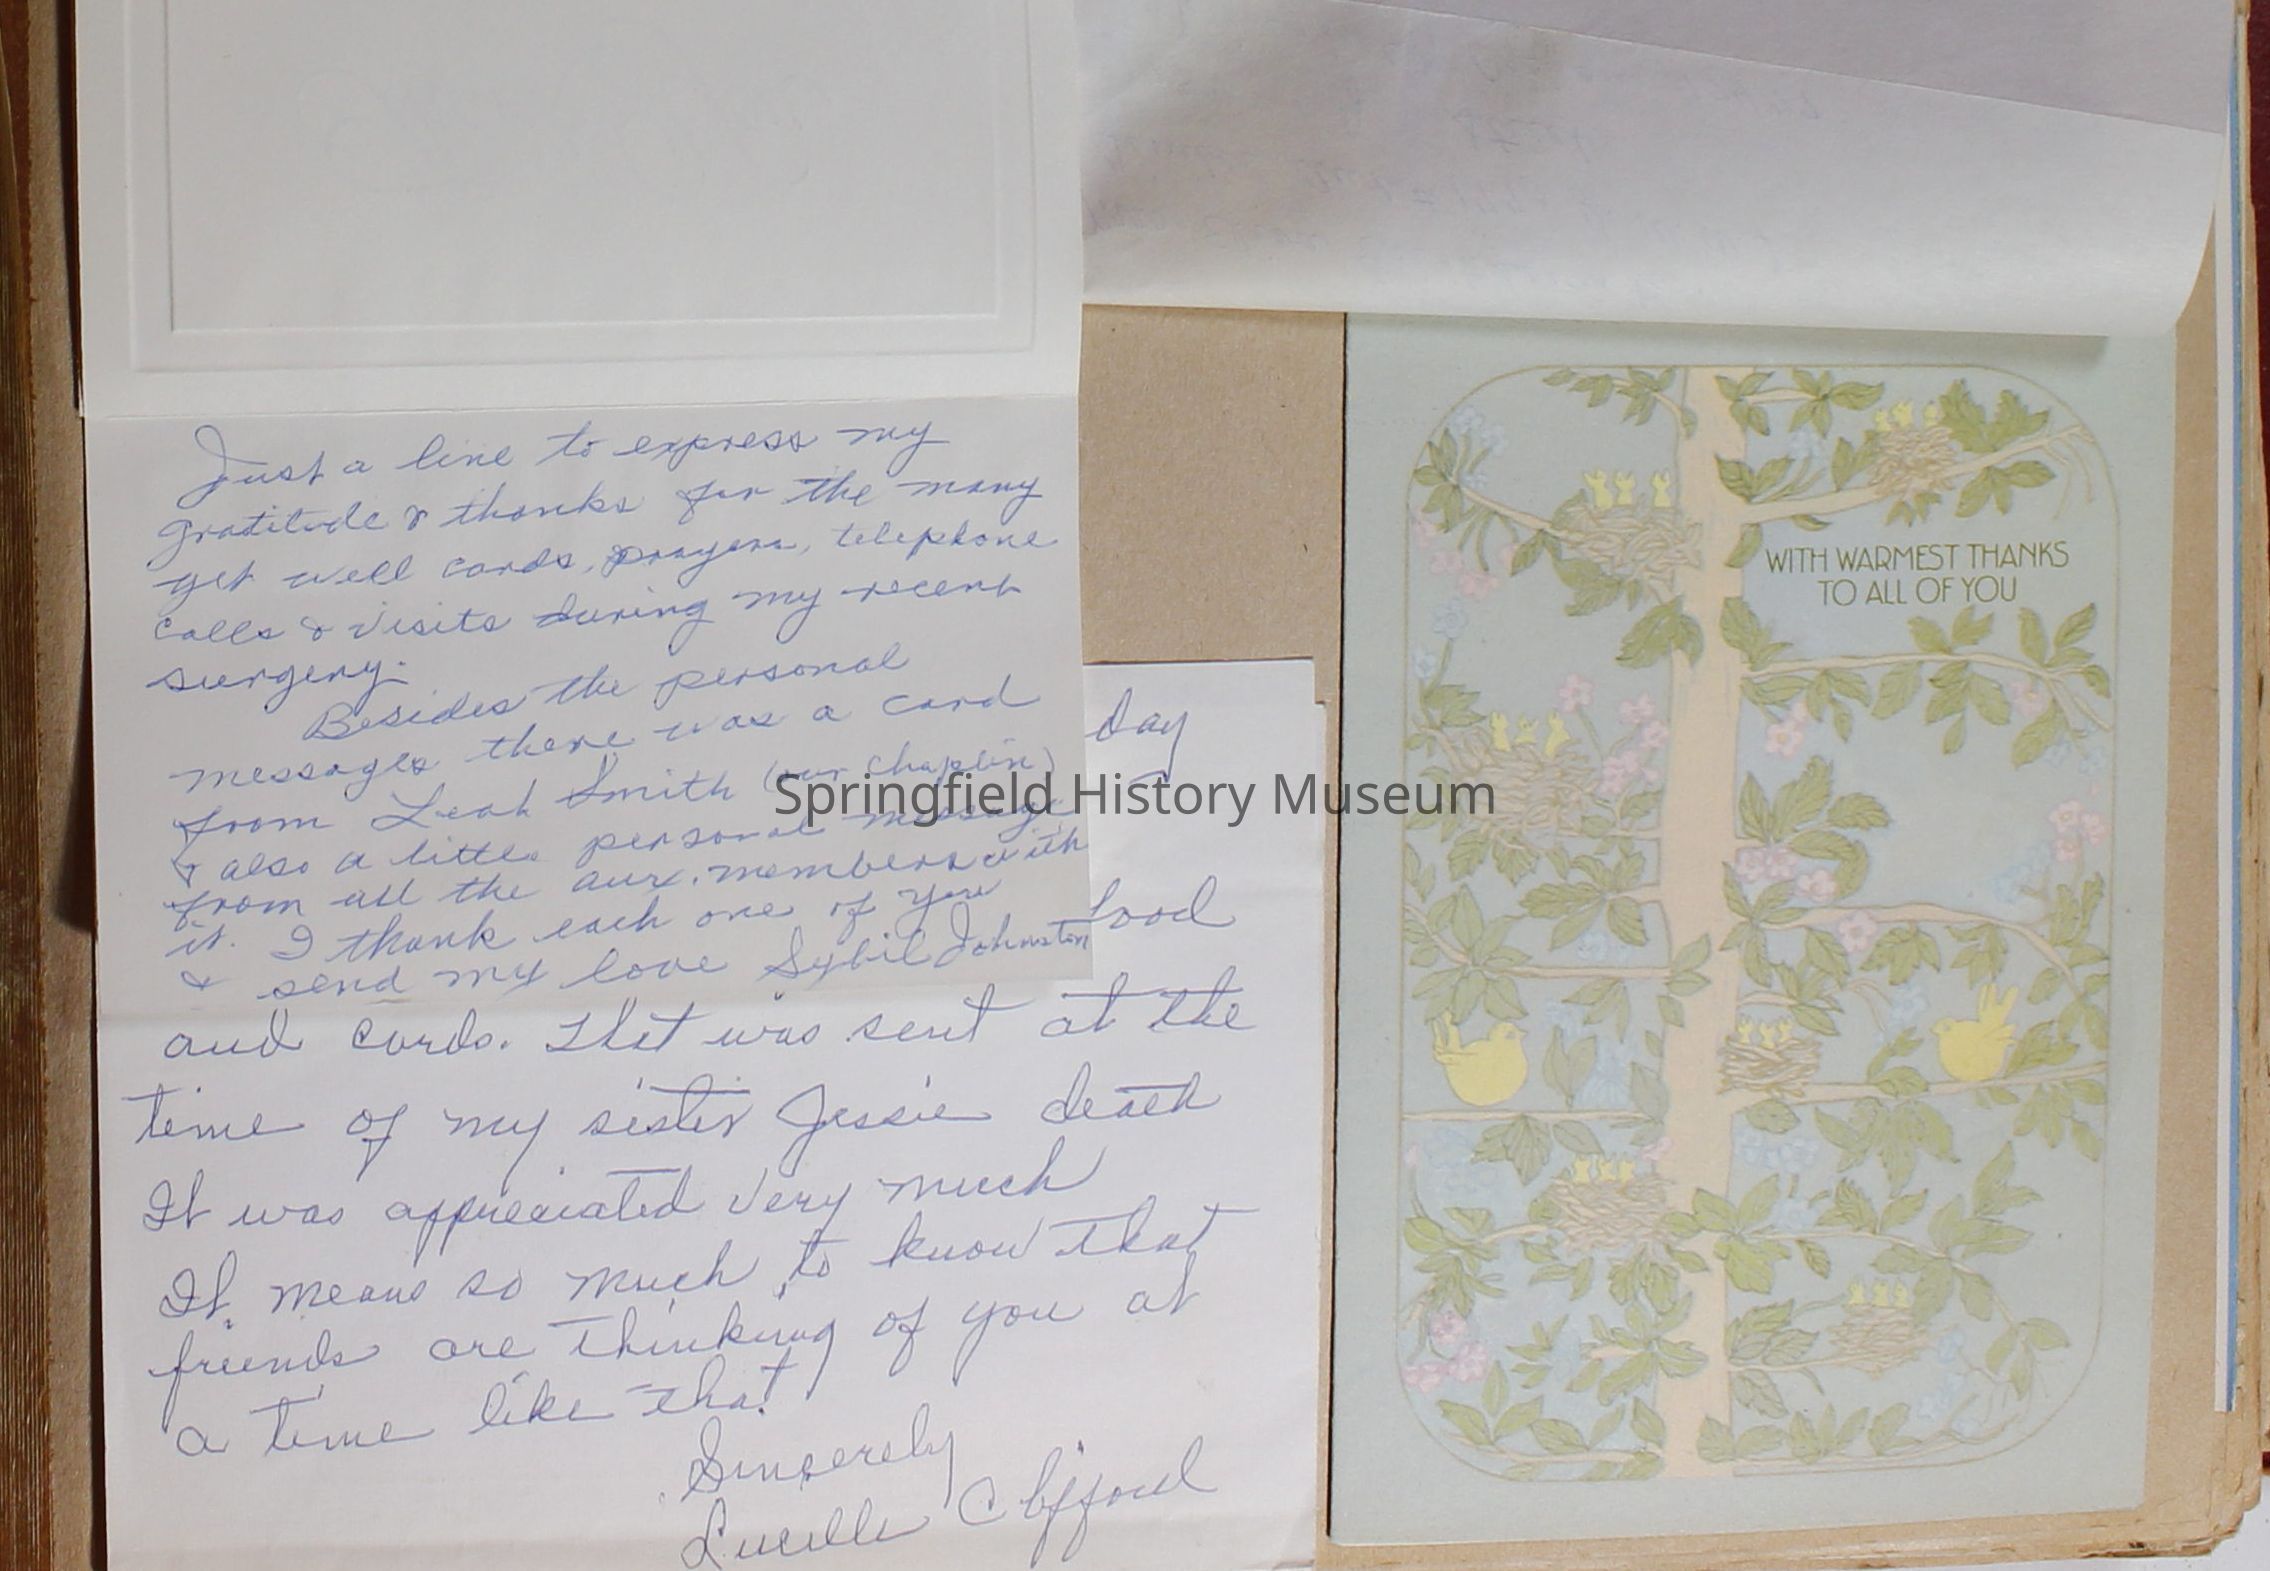 Just a line to express my
gratitude & thanks for the many
get well cards, prayers, telephone
calls & visits during my recent
surgery.
Besides the personal
messages there was a card
from Leah Smith (our chaplin)
& also a little personal message
from all the aux. members with
it. I thank each one of you
& send my love Sybil Johnston
day
food
and cards. That was sent at the
time of my sister Jessie death
It was appreciated very much
It means so much to know that
friends are thinking of you at
a time like that
Sincerely
Lucille Clifford
WITH WARMEST THANKS
TO ALL OF YOU
Springfield History Museum